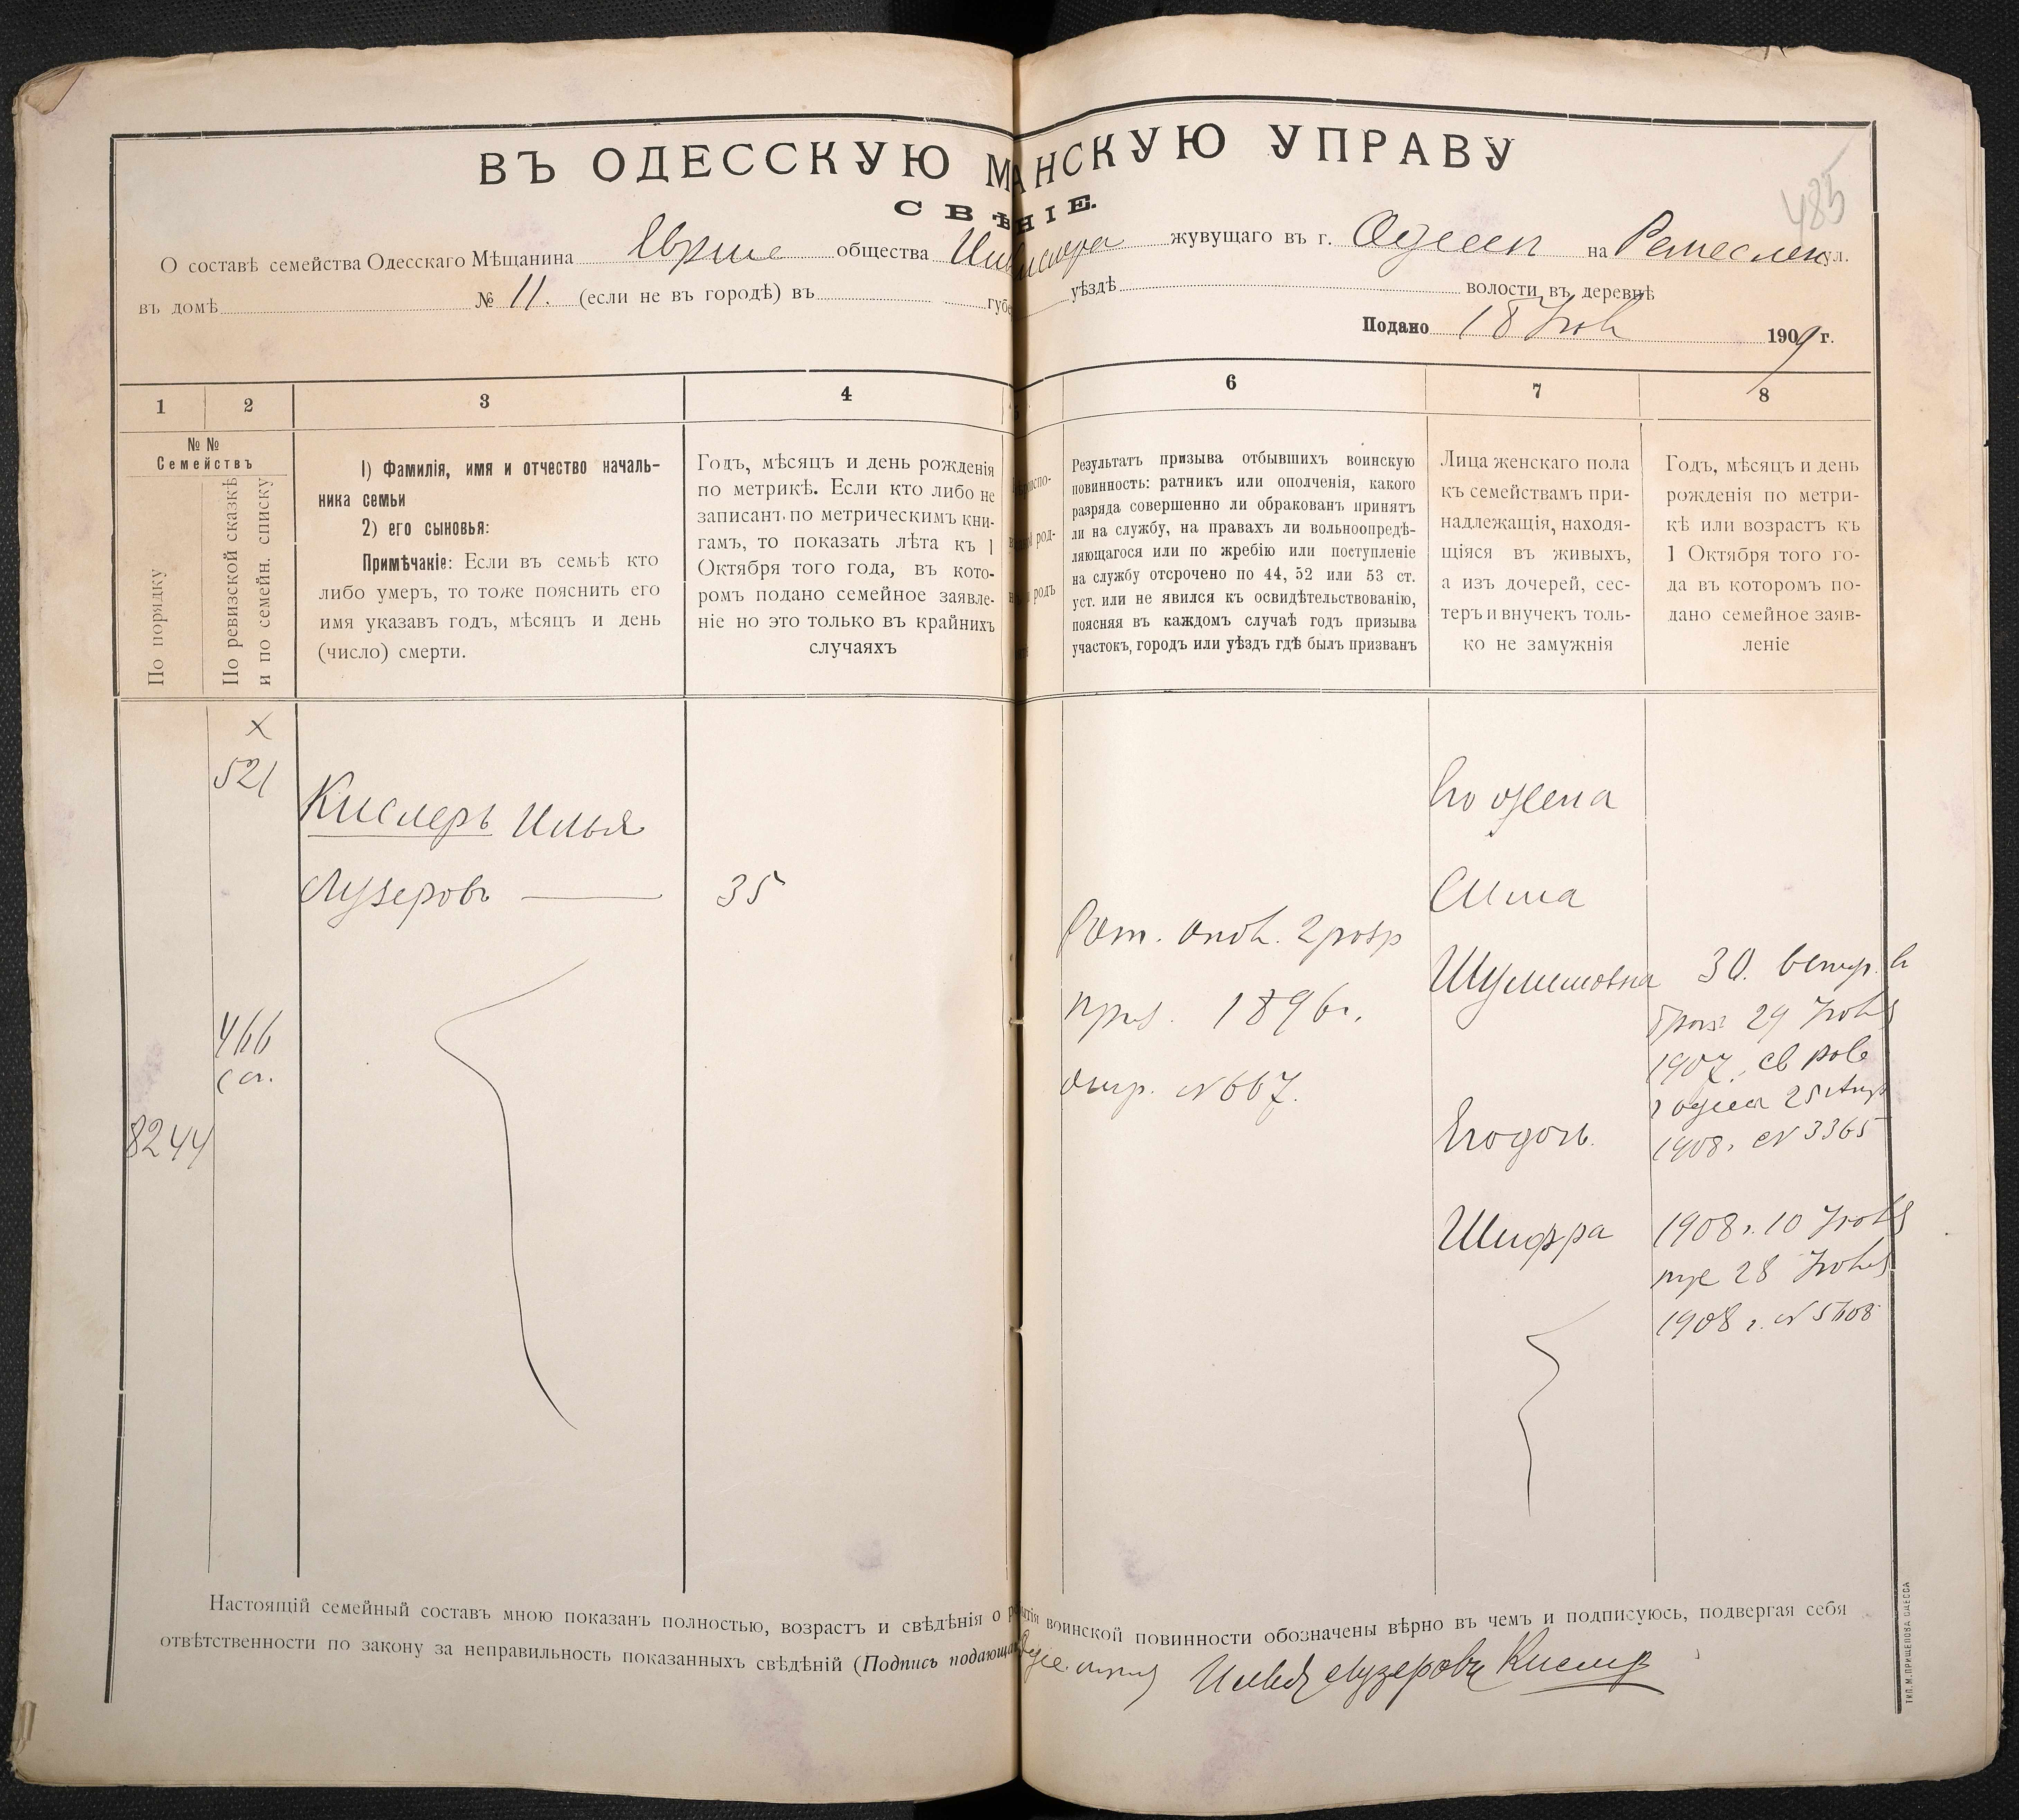 ВЪ ОДЕССКУЮ М АНСКУЮ УПРАВУ
СВѢ НІЕ.
485
О составѣ семейства Одесскаго Мѣщанина общества жувущаго въ г. Одессѣ на Ремеслен ул.
въ домѣ № 11. (если не въ городѣ) въ губе уѣздѣ волости въ деревнѣ
Подано 18 1909 г.
1 2 3 4 5 6 7 8
№ №
Семействъ
По порядку
По ревизской сказкѣ
и по семейн. списку
1) Фамилія, имя и отчество началь-
ника семьи
2) его сыновья:
Примѣчакіе: Если въ семьѣ кто
либо умеръ, то тоже пояснить его
имя указавъ годъ, мѣсяцъ и день
(число) смерти.
Годъ, мѣсяцъ и день рожденія
по метрикѣ. Если кто либо не
записанъ по метрическимъ кни-
гамъ, то показать лѣта къ 1
Октября того года, въ кото-
ромъ подано семейное заявле-
ніе но это только въ крайнихъ
случаяхъ
Результатъ призыва отбывшихъ воинскую
повинность: ратникъ или ополченія, какого
разряда совершенно ли обракованъ принятъ
ли на службу, на правахъ ли вольноопредѣ-
ляющагося или по жребію или поступленіе
на службу отсрочено по 44, 52 или 53 ст.
уст. или не явился къ освидѣтельствованію,
поясняя въ каждомъ случаѣ годъ призыва
участокъ, городъ или уѣздъ гдѣ былъ призванъ
Лица женскаго пола
къ семействамъ при-
надлежащія, находя-
щіяся въ живыхъ,
а изъ дочерей, сес-
теръ и внучекъ толь-
ко не замужнія
Годъ, мѣсяцъ и день
рожденія по метри-
кѣ или возрастъ къ
1 Октября того го-
да въ которомъ по-
дано семейное заяв-
леніе
х
521
Кислеръ Илья
Лузеровъ
35
466
сл.
8244
Рат. опол. 2 разр
приз. 1896 г.
отр. № 667.
Его жена
Сима
Шулимовна
30.
29
1907
25 Апр
1908, № 3365
Его дочь.
Шифра
1908 г. 10
28
1908 г. № 5608
Настоящій семейный составъ мною показанъ полностью, возрастъ и свѣдѣнія о воинской повинности обозначены вѣрно въ чемъ и подписуюсь, подвергая себя
отвѣтственности по закону за неправильность показанныхъ свѣдѣній (Подпись подающа Лузеровъ Кислер
ТИП. М. ПРИЩЕПОВА ОДЕССА